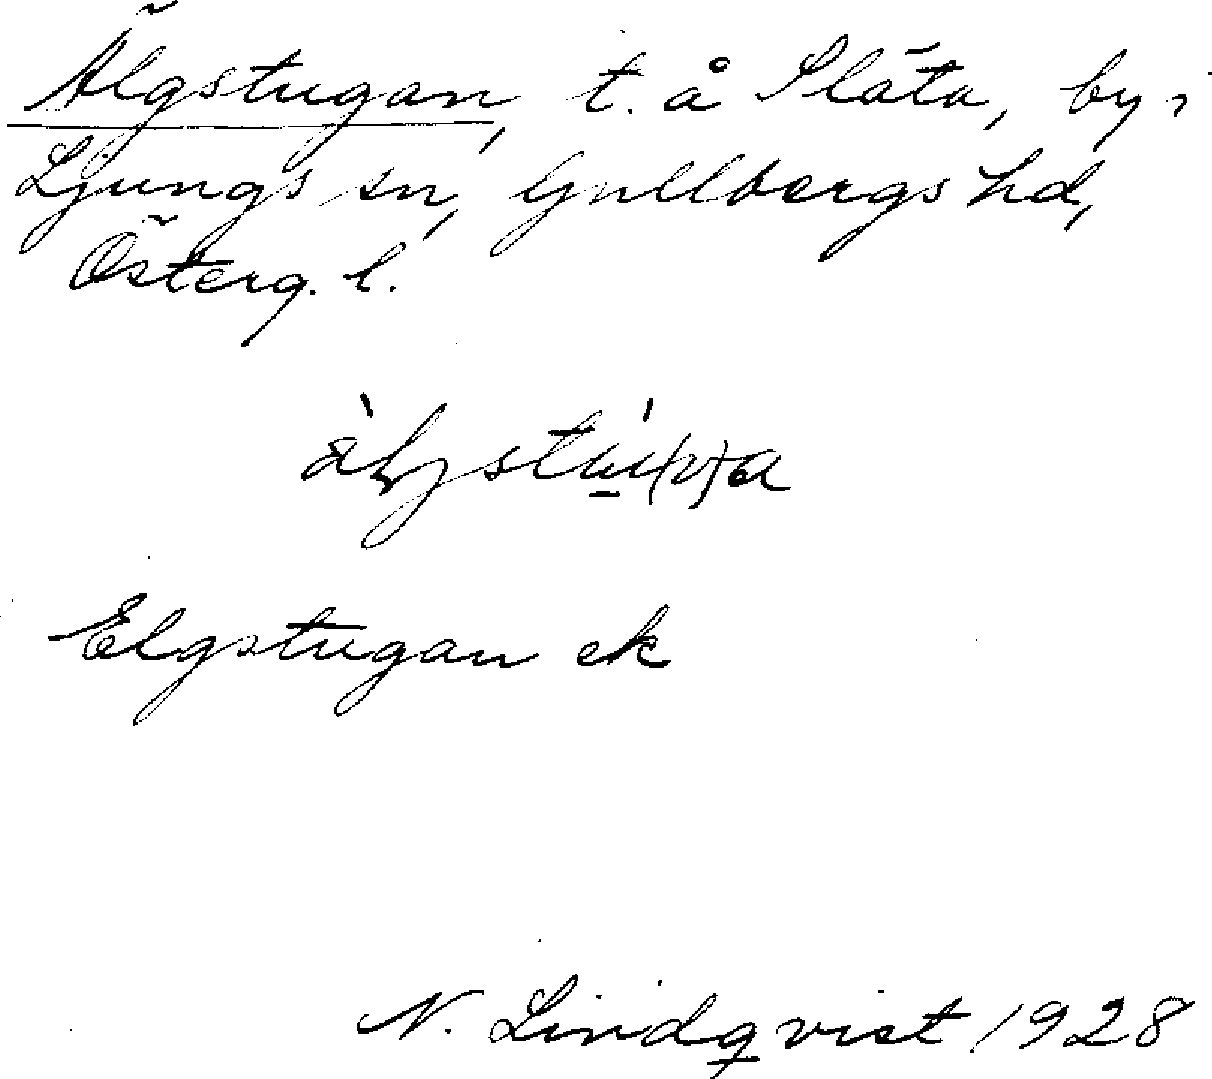 Älgstugan, t. å Släta, by i
Ljungs sn, Gullbergs hd,
Österg. l.
Elgstugan ek
N. Lindqvist 1928